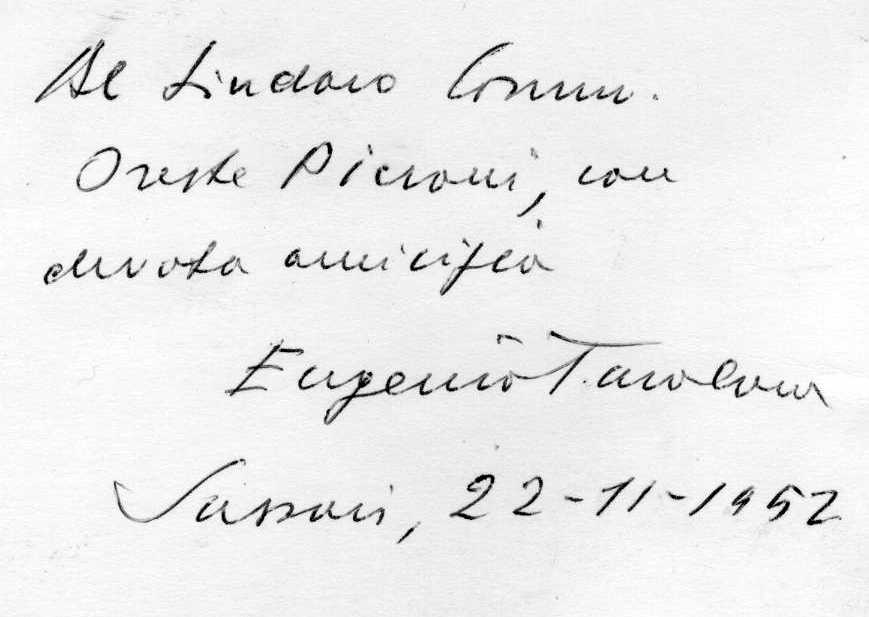 Al Sindaco Comm.
Oreste Pieroni, con
devota amicizia
Eugenio Tavolara
Sassari, 22-11-1952